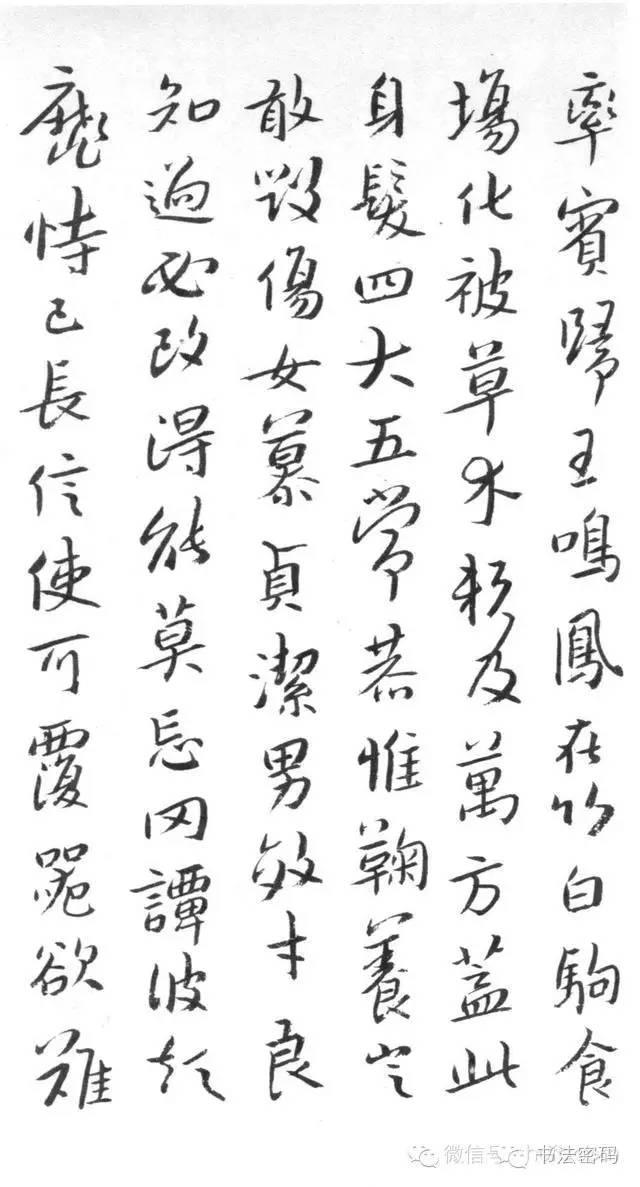 率賓歸王鳴鳳在竹白駒食
場化被草木賴及萬方蓋此
身髮四大五常恭惟鞠養豈
敢毀傷女慕貞潔男效才良
知過必改得能莫忘罔譚彼短
靡恃己長信使可覆器欲難
微信号
书法密码